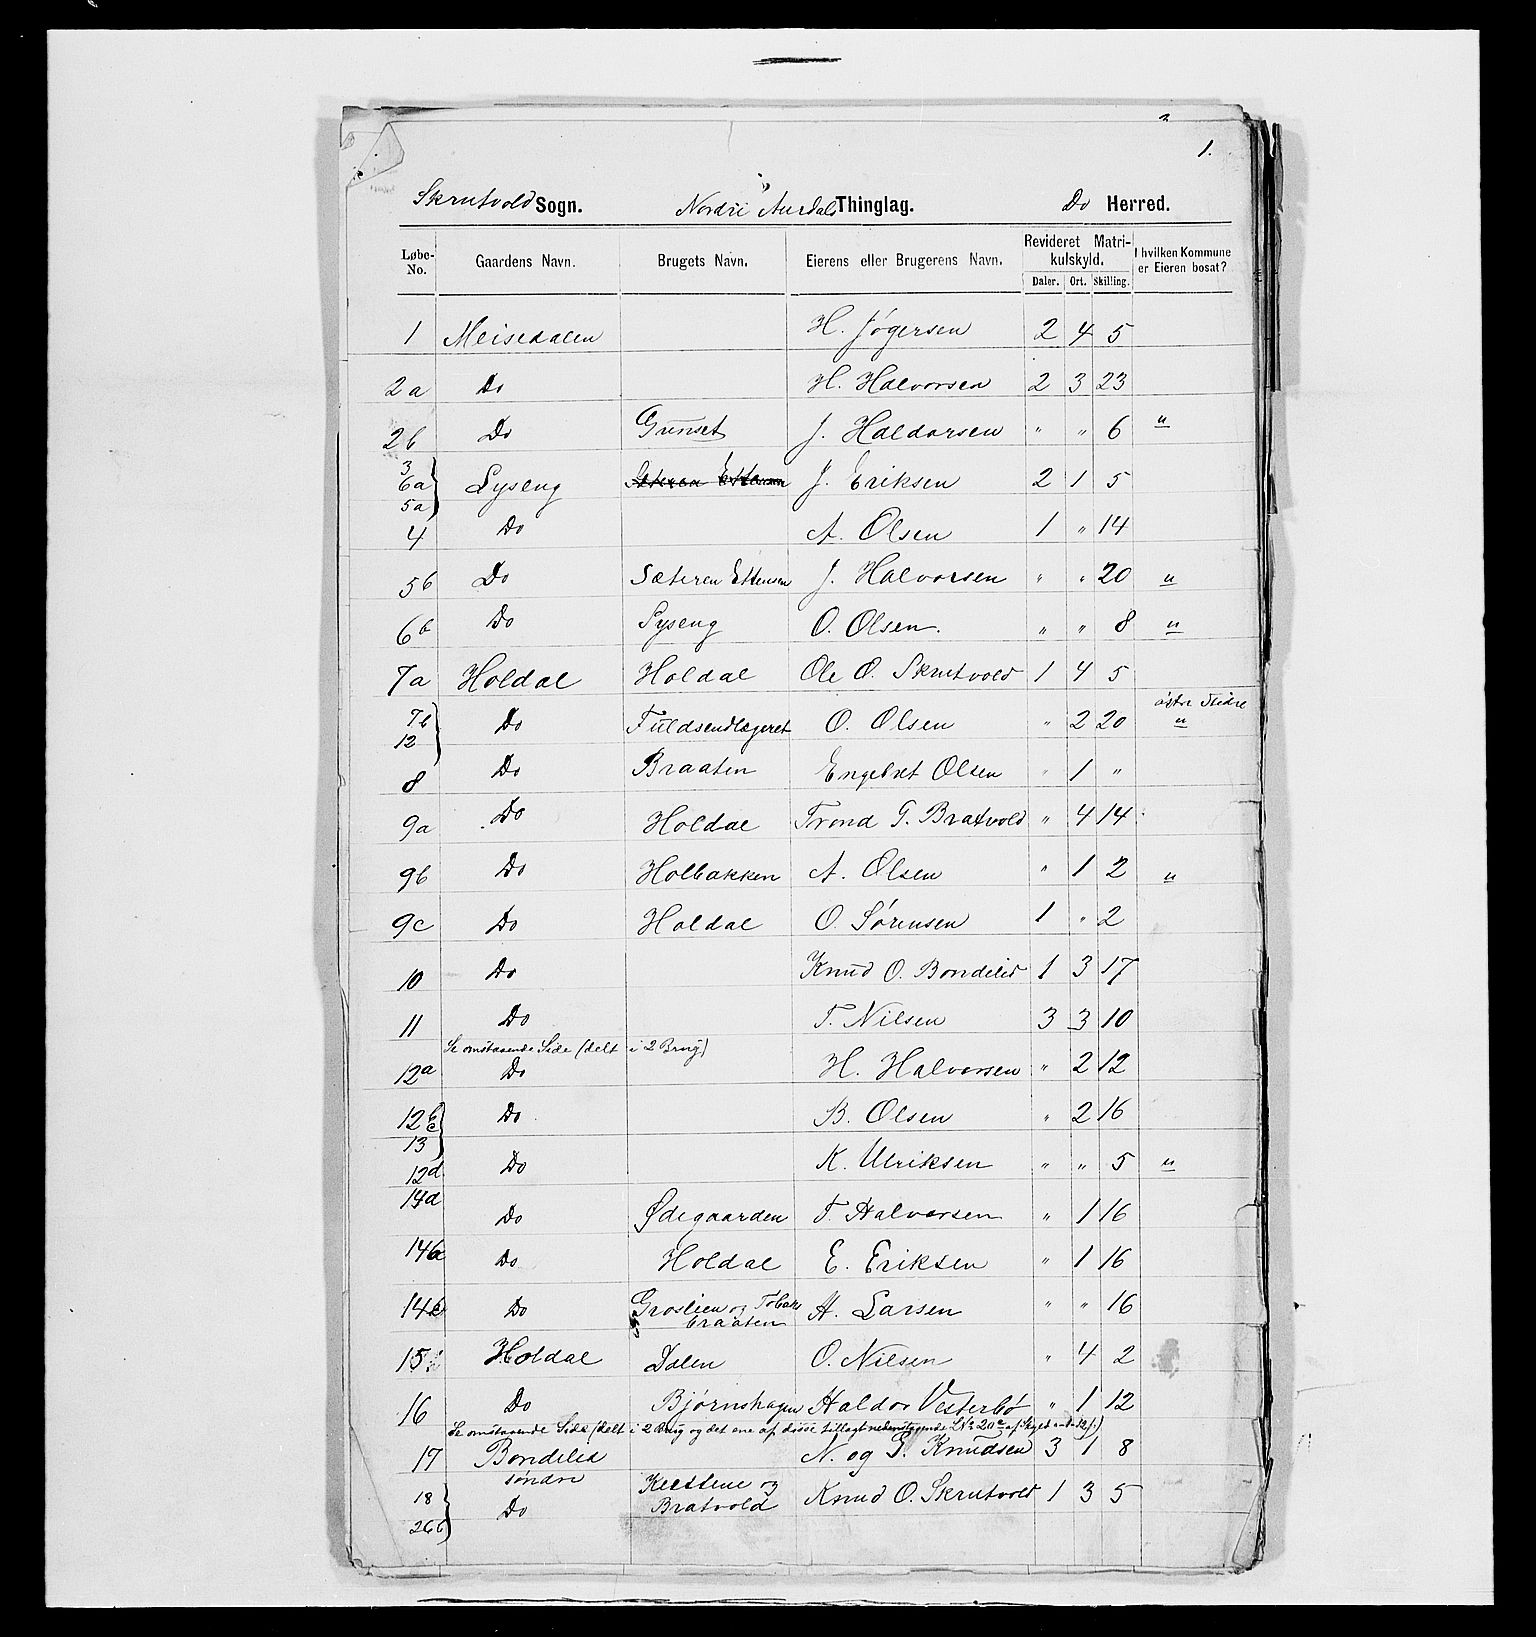 1.
Skrutvold Sogn. Nordre Aurdals Thinglag. Do Herred.
Løbe-No. Gaardens Navn. Brugets Navn. Eierens eller Brugerens Navn. Revideret Matrikulskyld. Daler. Ort. Skilling. I hvilken Kommune er Eieren bosat?
1 Meisedalen H. Jøgersen 2 4 5
2a Do H. Halvorsen 2 3 23
2b Do Gunset J. Haldorsen " " 6 "
3 6a 5a } Lyseng J. Eriksen 2 1 5
4 Do A. Olsen 1 " 14
5b Do Sæteren Ettensen J. Halvorsen " " 20 "
6b Do Lyseng O. Olsen. " " 8 "
7a Holdal Holdal Ole O. Skrutvold 1 4 5
7b 12 } Do Fuldsendlægeret O. Olsen " 2 20 østre Slidre "
8 Do Braaten Engebret Olsen " 1 "
9a Do Holdal Trond G. Bratvold " 4 14
9b Do Holbakken A. Olsen " 1 2 "
9c Do Holdal O. Sørensen 1 " 2
10 Do Knud O. Bondelid 1 3 17
11 Do T. Nilsen 3 3 10
Se omstaaende Side (delt i 2 Brug)
12a Do H. Halvorsen " 2 12
12b c 13 } Do B. Olsen " 2 16
12d Do K. Ulriksen " " 5 "
14d Do Ødegaarden T. Halvorsen " 1 16
14a Do Holdal E. Eriksen " 1 16
14 Do Groslien og Tobaks braaten H. Larsen " " 16
15 Holdal Dalen O. Nilsen " 4 2
16 Do Bjørnshagen Haldor Vesterbø " 1 12
Se omstaaende Side (delt i 2 Brug og det ene af disse tillagt nedenstaaende LNr 20a af Skyld
17 Bondelid søndre N. og G. Knudsen 3 1 8
18 26b } Do og Bratvold Knud O. Skrutvold 1 3 5